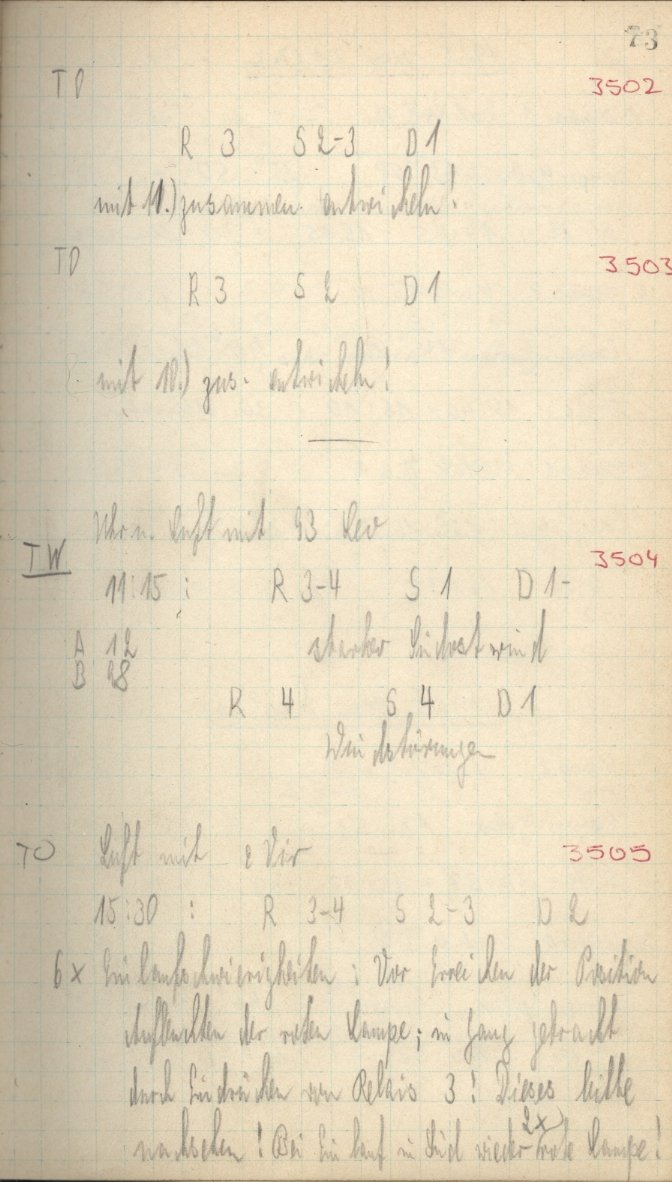 73
TO 3502
R 3 S 2-3 D 1
mit 11.) zusammen entwickeln!
TO 3503
R 3 S 2 D 1
mit 10.) zus. entwickeln!
Uhr u. Luft mit 93 Leo
TW 3504
11:15 : R 3-4 S 1 D 1-
A 12 starker Südostwind
B 98
R 4 S 4 D 1
Windstörungen
TO Luft mit ε Vir 3505
15:30 : R 3-4 S 2-3 D 2
6x Einlaufschwierigkeiten: Vor Erreichen der Position
Aufleuchten der roten Lampe; in Gang gebracht
durch Eindrücken von Relais 3! Dieses bitte
nachsehen! Bei Einlauf in Süd wieder 2x rote Lampe!